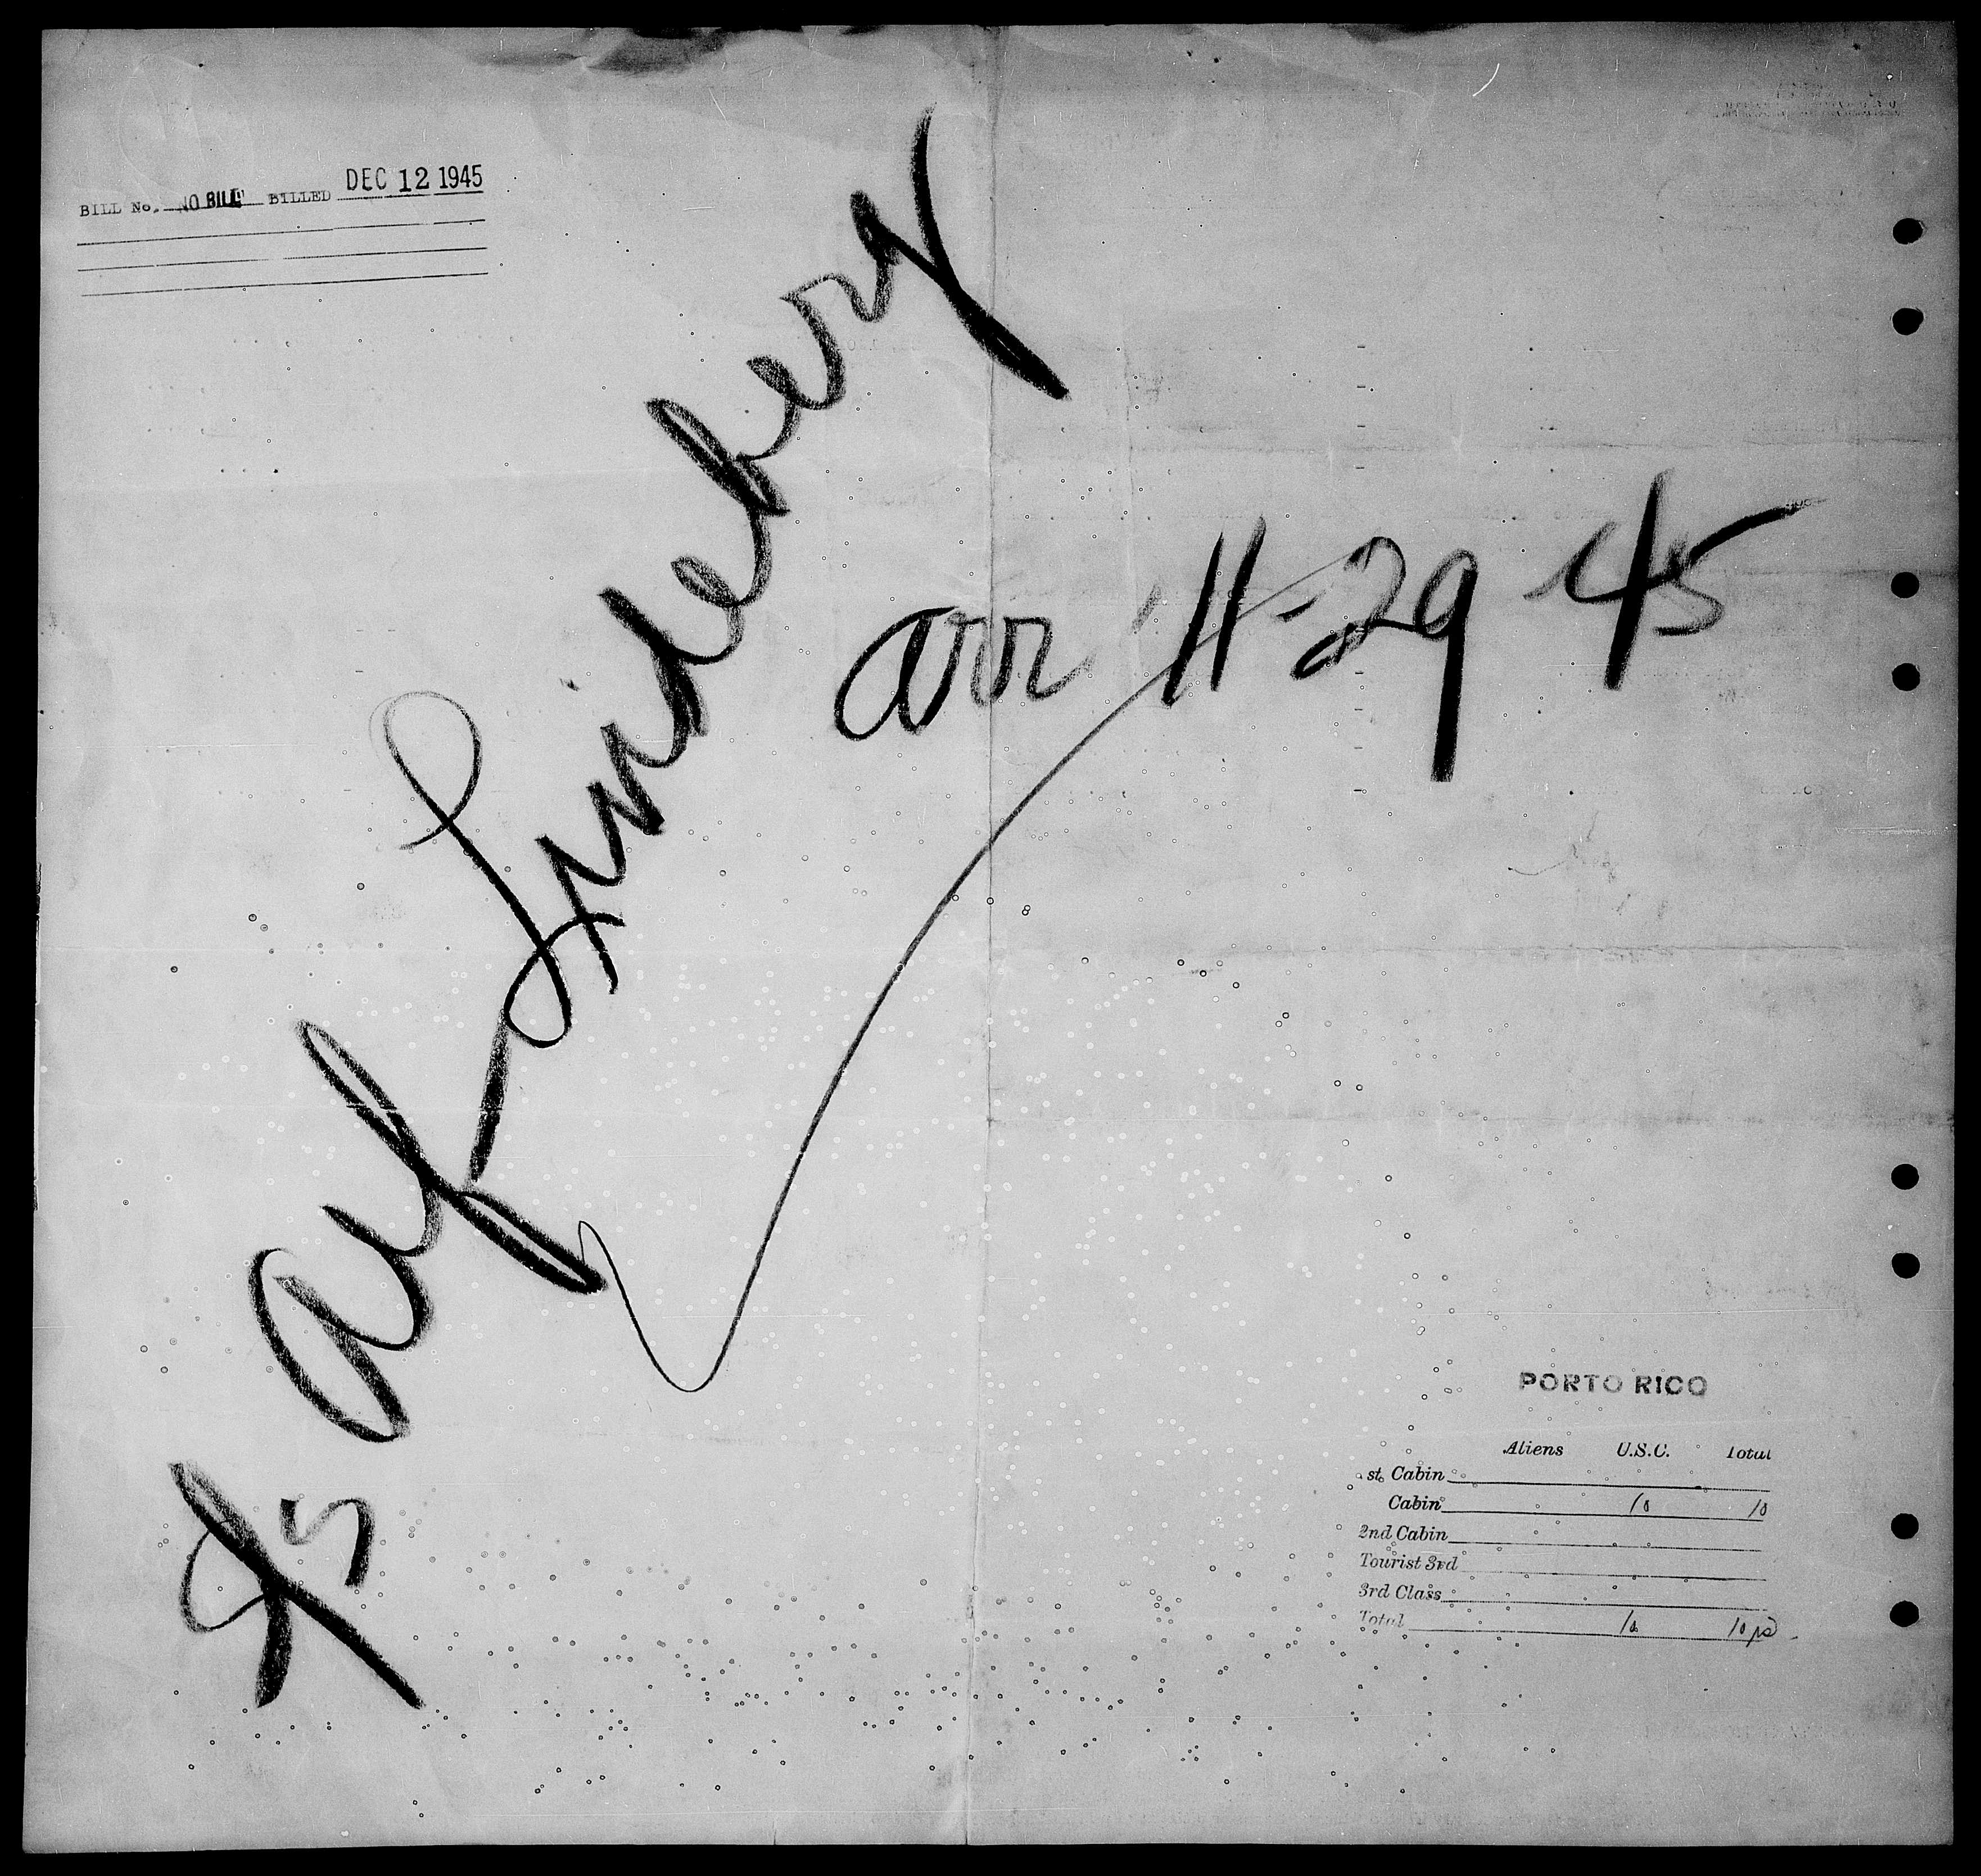 DEC 12 1945
BILL No. NO BILL BILLED
Ss Alf Lindeberg
arr 11-29 45
PORTO RICO
Aliens U.S.C. Total
st. Cabin
Cabin 10 10
2nd Cabin
Tourist 3rd
3rd Class
Total 10 10